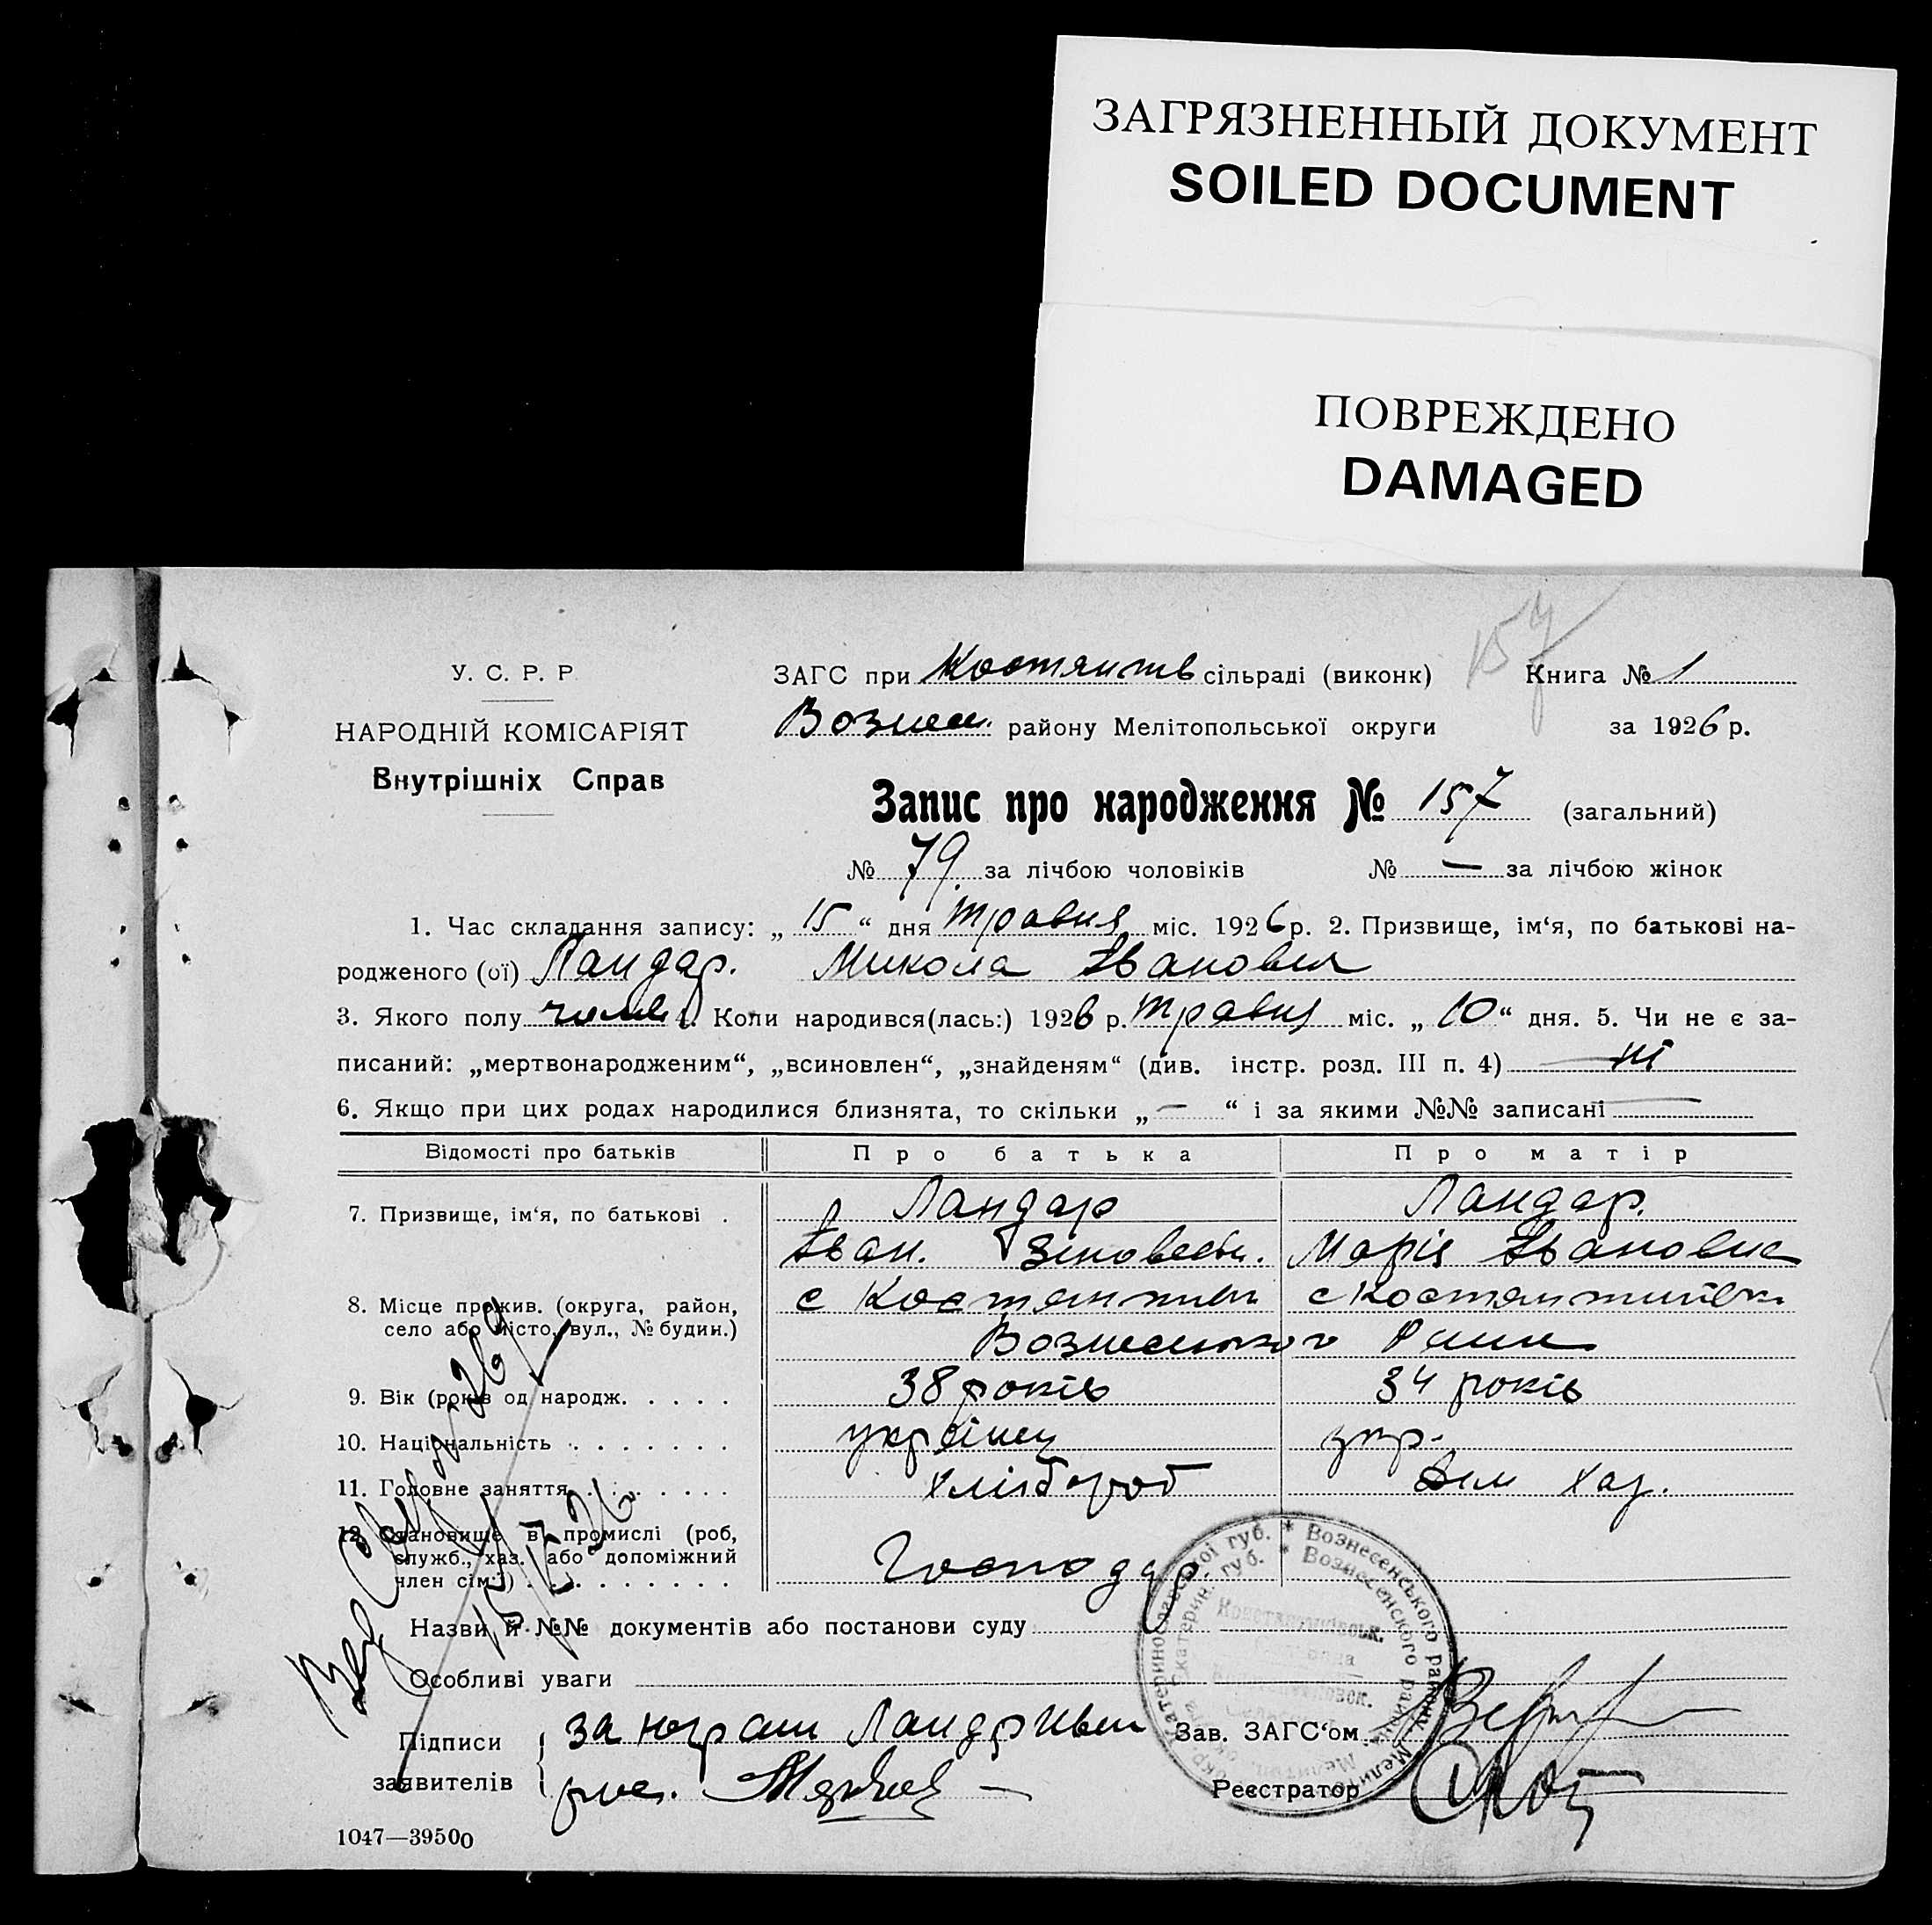 ЗАГРЯЗНЕННЫЙ ДОКУМЕНТ
SOILED DOCUMENT
ПОВРЕЖДЕНО
DAMAGED
157
У. С. Р. Р
ЗАГС при Костянтв сільраді (виконк) Книга № 1
НАРОДНІЙ КОМІСАРІЯТ
Вознесен. району Мелітопольської округи за 1926 р.
Внутрішніх Справ
Запис про народження № 157 (загальний)
№ 79. за лічбою чоловіків № — за лічбою жінок
1. Час складання запису: „ 15 “ дня травня міс. 1926 р. 2. Призвище, ім‘я, по батькові на-
родженого (ої) Ландар. Микола Іванович
3. Якого полу чолов 4. Коли народився(лась:) 1926 р. травня міс. „ 10 “ дня. 5. Чи не є за-
писаний: „мертвонародженим“, „всиновлен“, „знайденям“ (див. інстр. розд. III п. 4) ні
6. Якщо при цих родах народилися близнята, то скільки „ — “ і за якими №№ записані —
Відомості про батьків Про батька Про матір
7. Призвище, ім‘я, по батькові . Ландар Ландар.
Іван. Марія Івановна
8. Місце прожив. (округа, район, с Костянтин с Костянтинівк
село або місто, вул., № будин.) Вознесенског Раин
9. Вік (років од народж. . . . . 38 років 34 років
10. Національність . . . . . . . українец укр.
11. Головне заняття . . . . . . . хлібороб дом хаз.
12. Становище в промислі (роб,
служб., хаз. або допоміжний Господар.
член сім‘ї) . . . . . . . . . .
Назви й №№ документів або постанови суду
Особливі уваги
Підписи за неграм Ландар Иван Зав. ЗАГС‘ом
заявителів рос. Реєстратор
1047—39500
Катеринославської губ. * Вознесенського району Меліт
Екатерин. губ. * Вознесенского района Мелитоп. окр
Константинівськ.